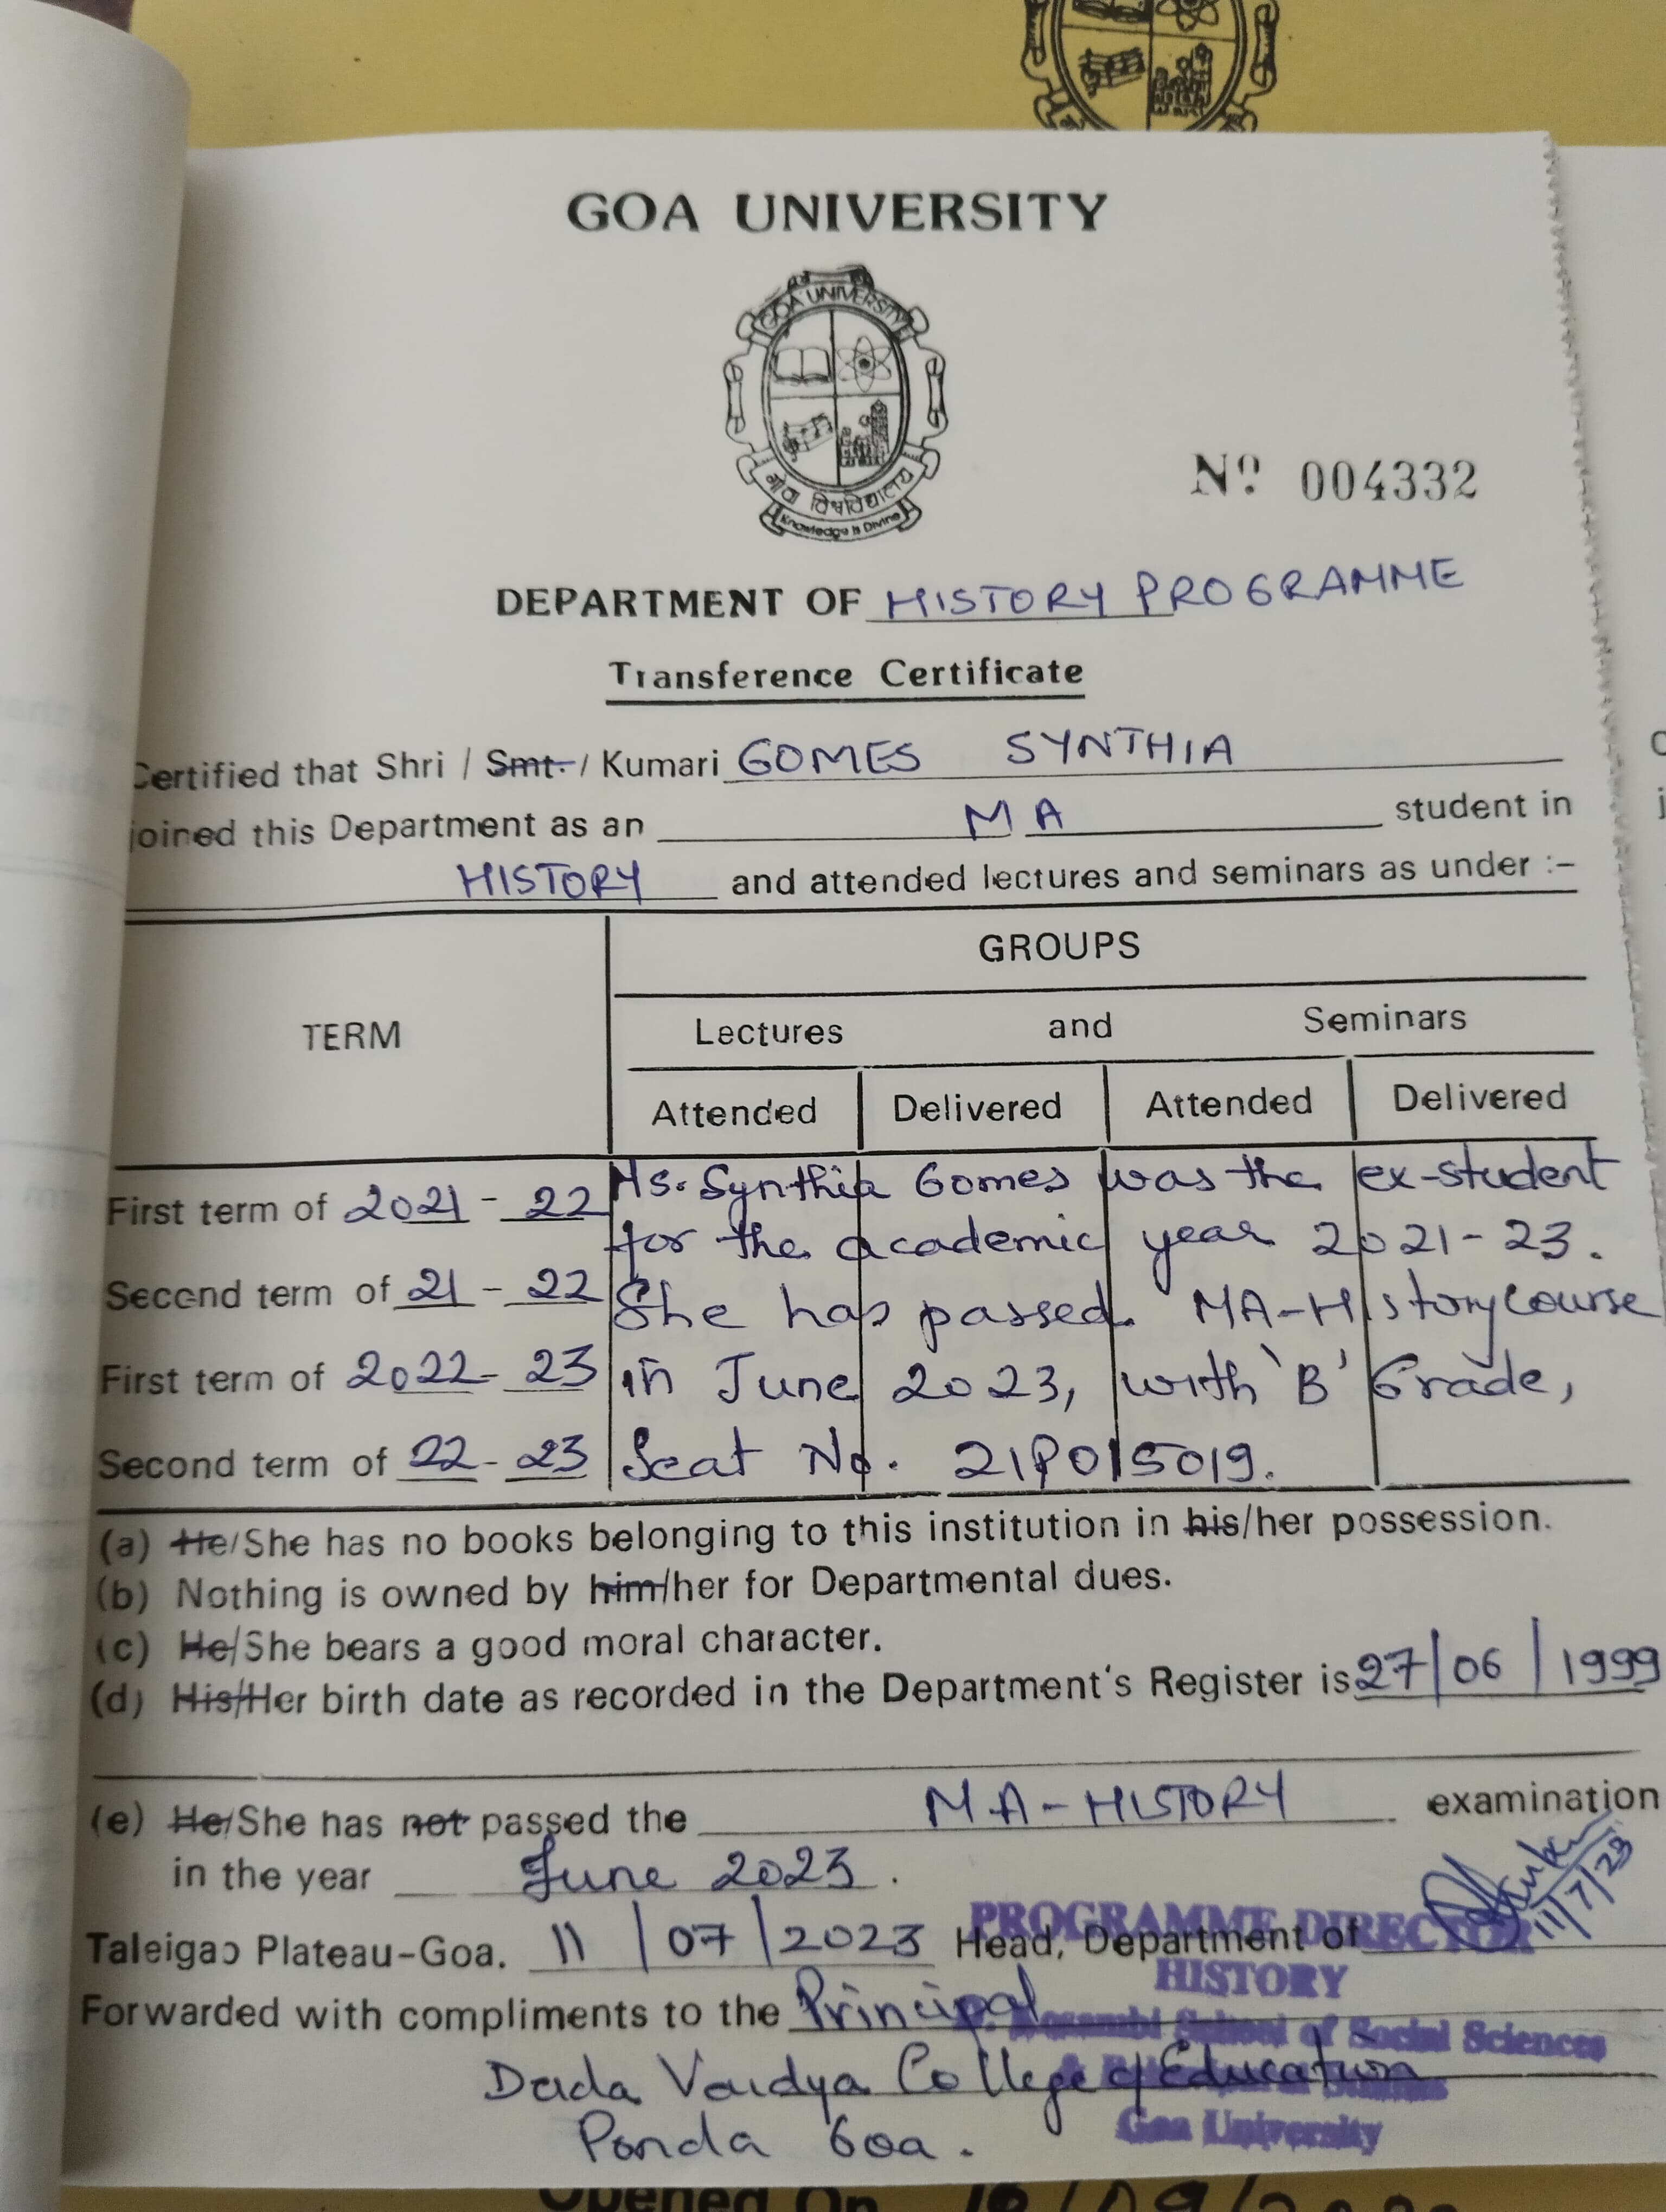 GOA UNIVERSITY
GOA UNIVERSITY
गोवा विश्वविद्यालय
Knowledge is Divine
Nº 004332
DEPARTMENT OF HISTORY PROGRAMME
Transference Certificate
Certified that Shri / Smt. / Kumari GOMES SYNTHIA
joined this Department as an MA student in
HISTORY and attended lectures and seminars as under :–
GROUPS
TERM
Lectures and Seminars
Attended Delivered Attended Delivered
First term of 2021 - 22 Ms. Synthia Gomes was the ex-student
for the academic year 2021-23.
Second term of 21 - 22 She has passed. MA-History Course
First term of 2022 - 23 in June 2023, with 'B' Grade,
Second term of 22 - 23 Seat No. 21P015019.
(a) He/She has no books belonging to this institution in his/her possession.
(b) Nothing is owned by him/her for Departmental dues.
(c) He/She bears a good moral character.
(d) His/Her birth date as recorded in the Department's Register is 27/06/1999
(e) He/She has not passed the MA-HISTORY examination
in the year June 2023.
11/7/23
Taleigao Plateau-Goa. 11/07/2023 Head, Department of
PROGRAMME DIRECTOR
HISTORY
Forwarded with compliments to the Principal
School of Social Sciences
Dada Vaidya College of Education
Goa University
Ponda Goa.
Opened On